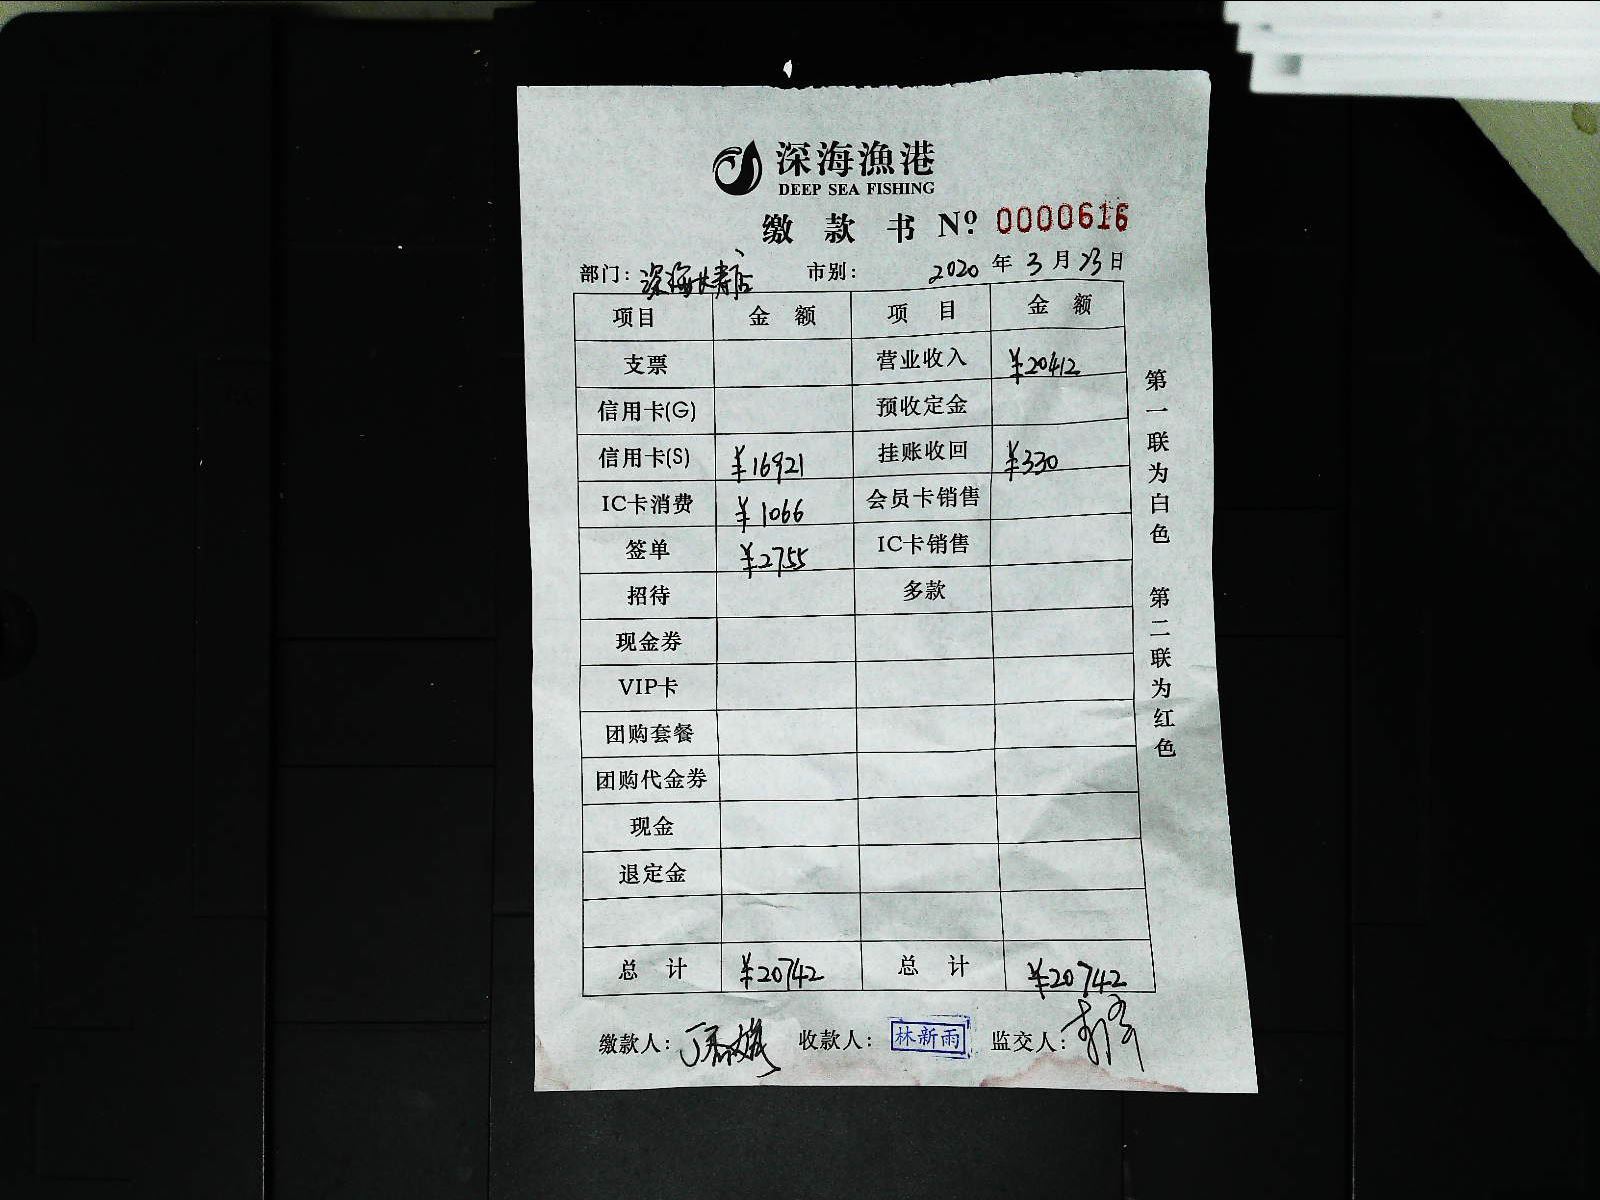 深海漁港
DEEP SEA FISHING
缴 款 书 Nº: 0000616
部门: 深海长寿店 市别: 2020 年 3 月 23 日
项目 金 额 项 目 金 额
支票 营业收入 ¥20412
信用卡(G) 预收定金
信用卡(S) ¥16921 挂账收回 ¥330
IC卡消费 ¥1066 会员卡销售
签单 ¥2755 IC卡销售
招待 多款
现金券
VIP卡
团购套餐
团购代金券
现金
退定金
总 计 ¥20742 总 计 ¥20742
缴款人: 收款人: 林新雨 监交人:
第一联为白色 第二联为红色